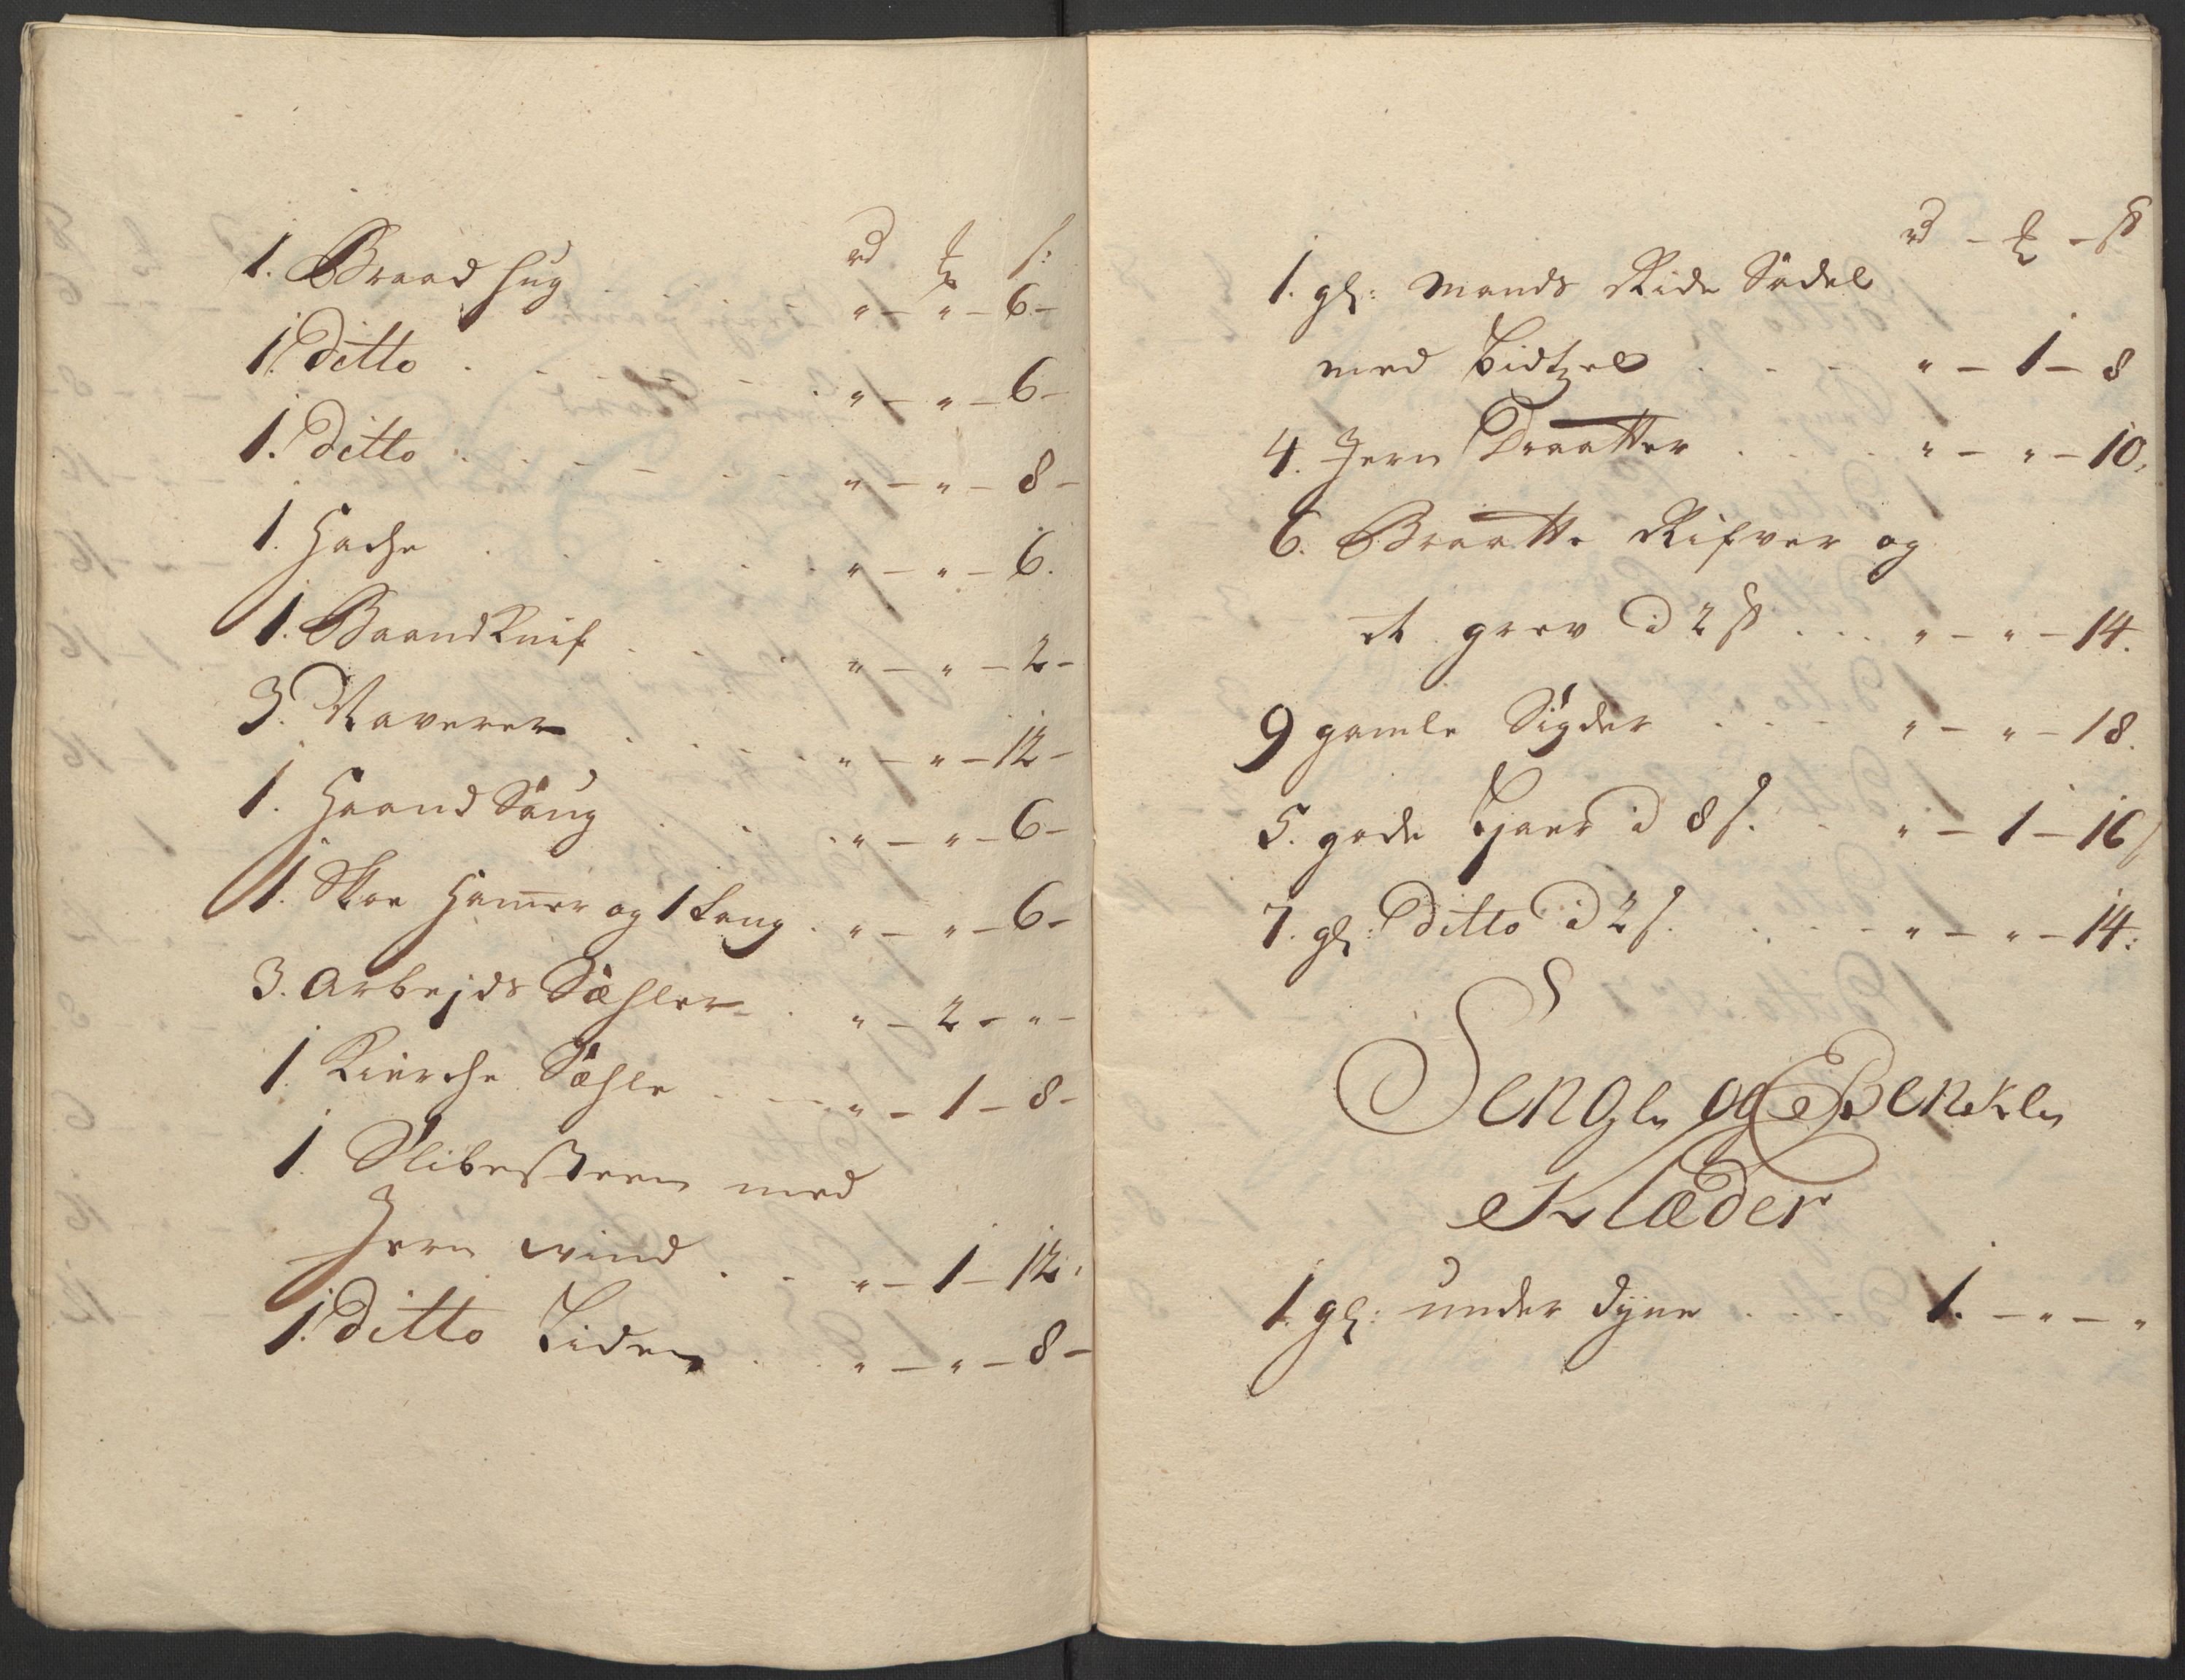 rd ₻ s:
1. Braad hug . . . " - " - 6 -
1. Ditto . . . " - " - 6 -
1. Ditto . . . " - " - 8 -
1. Hache . . . " - " - 6.
1. Baand Knif . . . " - " - 2 -
3. Naverer . . . " - " - 12 -
1. Haand Saug . . . " - " - 6 -
1. Skoe Hamer og 1 Tang . " - " - 6 -
3. Arbejds Sæhler . " - 2 - " -
1. Kierche Sæhle . . . " - 1 - 8 -
1. Slibesteen med
Jern vind . . " - 1 - 12.
1. Ditto liden . . " - " - 8 -
rd - ₻ - ß
1. gl: Mands Ride Sadel
med bidtzel . . . " - 1 - 8
4. Jern Traatter . . . " - " - 10.
6. Braatte Rifver og
et grev à 2 ß . . . " - " - 14.
9 gamle Sigder . . . " - " - 18.
5. gode Ljaer à 8 s. . " - 1 - 16
7. gl: Ditto à 2 s. . . . " - " - 14:
Senge og Benke
Klæder
1. gl: under dyne . . . 1. - " - "